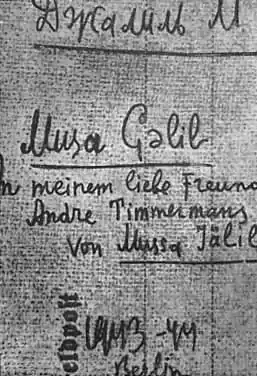 Джалиль М
Musa Gəlil
meinem liebe Freund
Andre Timmermans
Von Mussa Jälil
eldpost
1943-44
Berlin